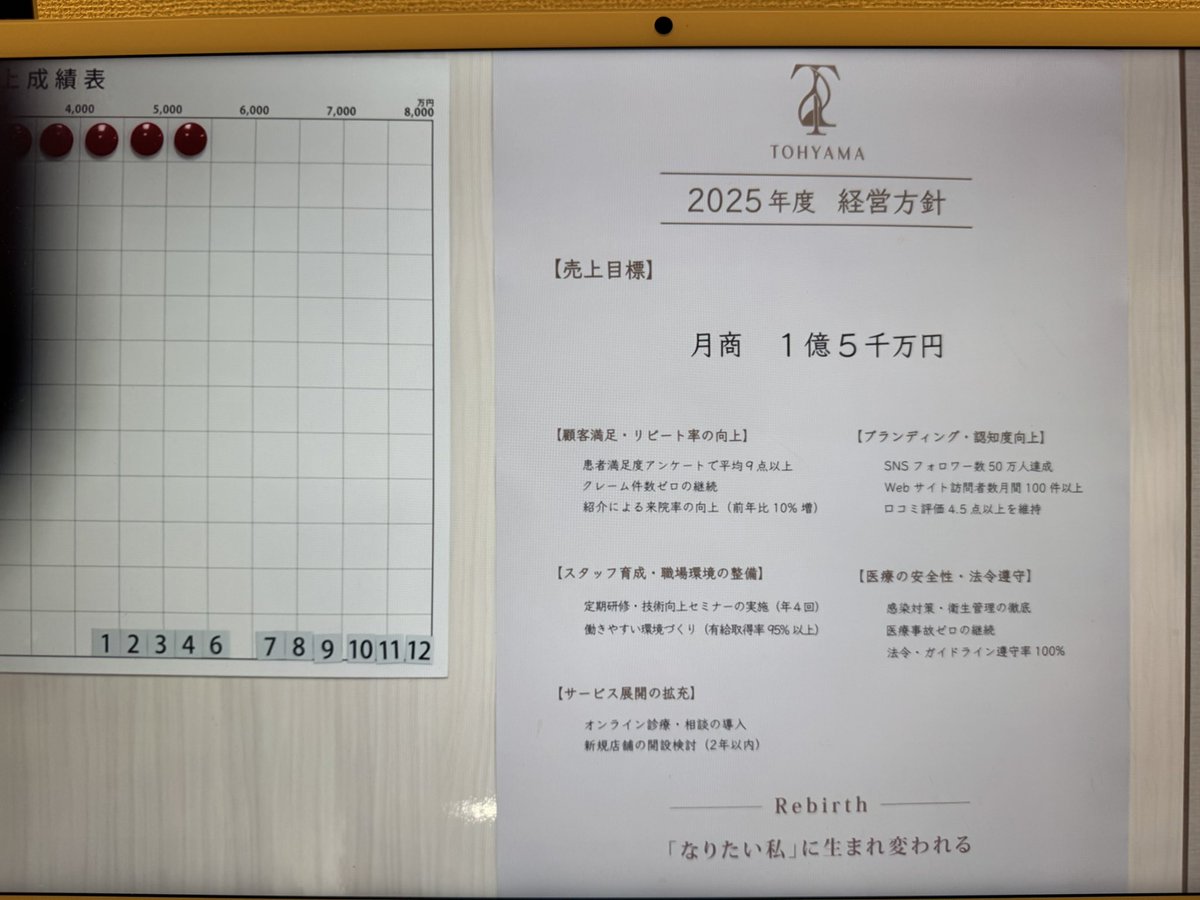 上成績表
万円
4,000 5,000 6,000 7,000 8,000
1 2 3 4 6 7 8 9 10 11 12
TOHYAMA
2025年度 経営方針
【売上目標】
月商 1億5千万円
【顧客満足・リピート率の向上】
患者満足度アンケートで平均9点以上
クレーム件数ゼロの継続
紹介による来院率の向上（前年比10%増）
【ブランディング・認知度向上】
SNSフォロワー数50万人達成
Webサイト訪問者数月間100件以上
口コミ評価4.5点以上を維持
【スタッフ育成・職場環境の整備】
定期研修・技術向上セミナーの実施（年4回）
働きやすい環境づくり（有給取得率95%以上）
【医療の安全性・法令遵守】
感染対策・衛生管理の徹底
医療事故ゼロの継続
法令・ガイドライン遵守率100%
【サービス展開の拡充】
オンライン診療・相談の導入
新規店舗の開設検討（2年以内）
Rebirth
「なりたい私」に生まれ変われる